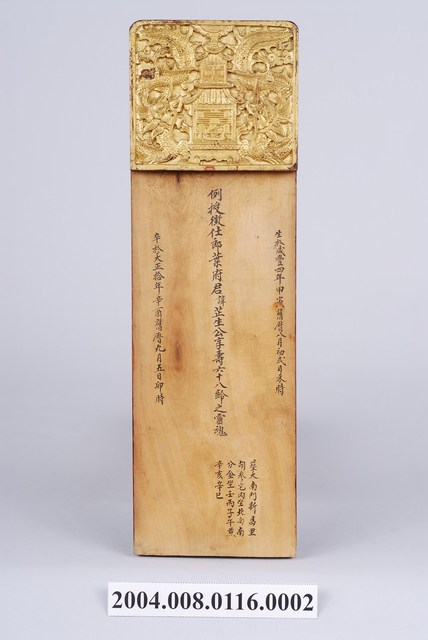 生於咸豐四年甲寅舊曆八月初弍日未時
例授徵仕郎葉府君諱芷生公享壽六十八齡之靈魂
卒於大正拾年辛酉舊曆九月五日卯時
塟大南門新昌里
坐北向南
分金坐壬丙子午兼
辛亥辛巳
2004.008.0116.0002